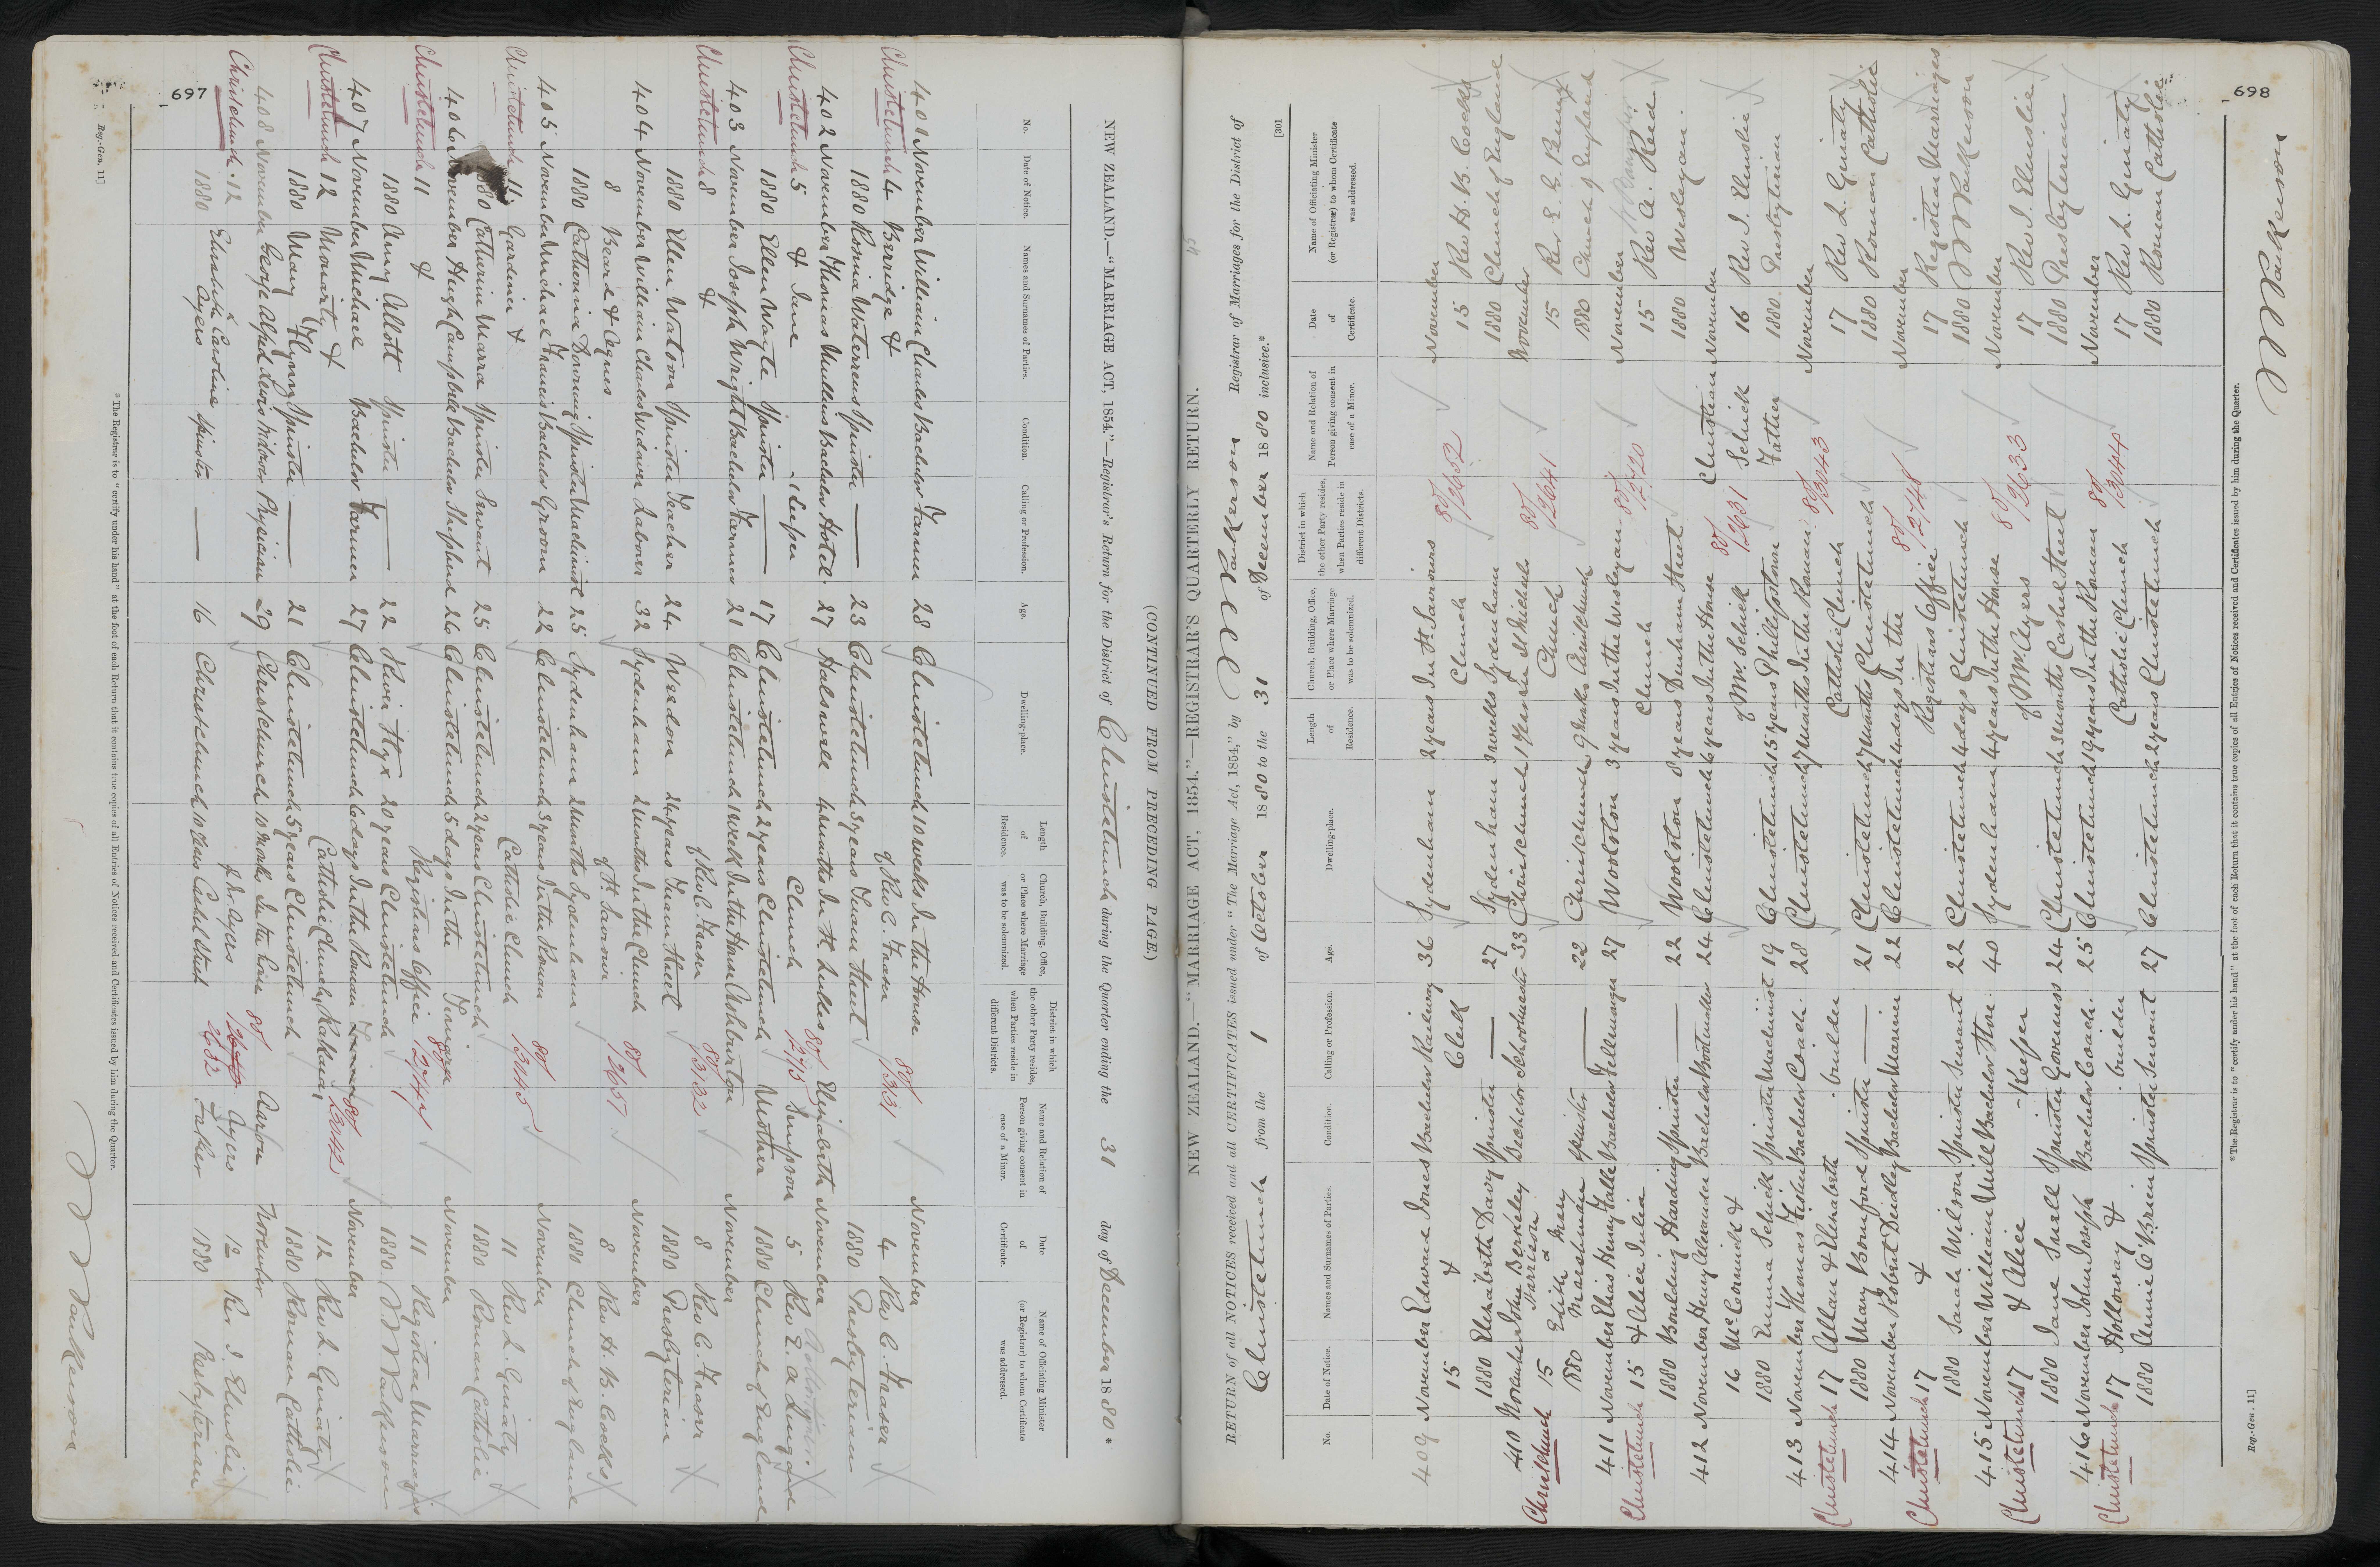 697
NEW ZEALAND.—"MARRIAGE ACT, 1854."—Registrar's Return for the District of Christchurch during the Quarter ending the 31 day of December 1880.
(CONTINUED FROM PRECEDING PAGE.)
No. Date of Notice. Names and Surnames of Parties. Condition. Calling or Profession. Age. Dwelling-place. Length of Residence. Church, Building, Office, or Place where Marriage was to be solemnized. District in which the other Party resides, when Parties reside in different Districts. Name and Relation of Person giving consent in case of a Minor. Date of Certificate. Name of Officiating Minister (or Registrar) to whom Certificate was addressed.
401 November William Charles Bachelor Farmer 28 Christchurch 10 weeks In the House November
Christchurch 4 Berridge & of Rev C. Fraser 80/3131 4 Rev C. Fraser
1880 Rosina Waterens Spinster — 23 Christchurch 3 years Tuam Street 1880 Presbyterian
402 November Thomas Mullens Bachelor Hotel 27 Halswell 4 months In St Lukes Elizabeth November
Christchurch 5 & Jane Keeper Church 80/2715 Simpson 5 Rev E. A. Lingard
1880 Ellen Wayte Spinster — 17 Christchurch 2 years Christchurch Mother 1880 Church of England
403 November Joseph Wright Bachelor Farmer 21 Christchurch 1 week In the House Ashburton November
Christchurch 8 & of Rev C. Fraser 80/3132 8 Rev C. Fraser
1880 Ellen Watson Spinster Teacher 24 Weedon 24 years Tuam Street 1880 Presbyterian
404 November William Charles Widower Laborer 32 Sydenham 2 months In the Church November
8 Beard & Agnes of St Saviour 80/2651 8 Rev H. B. Cocks
1880 Catherine Downing Spinster Machinist 25 Sydenham 2 months Sydenham 1880 Church of England
405 November Michael Francis Bachelor Groom 22 Christchurch 3 years In the Roman November
Christchurch 11 Gardiner & Catholic Church 80/3045 11 Rev L. Ginaty
1880 Catherine Marra Spinster Servant 25 Christchurch 2 years Christchurch 1880 Roman Catholic
406 November Hugh Campbell Bachelor Shepherd 26 Christchurch 5 days In the November
Christchurch 11 & Registrars Office 80/2744 11 Registrar Marriages
1880 Amy Allott Spinster — 22 River Styx 20 years Christchurch 1880 Parkerson
407 November Michael Bachelor Farmer 27 Christchurch 6 days In the Roman November
Christchurch 12 Moriarty & Catholic Church, Rakaia 12 Rev L. Ginaty
1880 Mary Flynn Spinster — 21 Christchurch 5 years Christchurch 1880 Roman Catholic
408 November George Alfred Lewis Widower Physician 29 Christchurch 10 months In the House 80 Aaron November
Christchurch 12 & of Mr Ayers 2632 Ayers 12 Rev J. Elmslie
1880 Elizabeth Caroline Ayers Spinster — 16 Christchurch 10 years Cashel Street Father 1880 Presbyterian
Parkerson
* The Registrar is to "certify under his hand" at the foot of each Return that it contains true copies of all Entries of Notices received and Certificates issued by him during the Quarter.
Reg.-Gen. 11]
698
45
NEW ZEALAND.—"MARRIAGE ACT, 1854."—REGISTRAR'S QUARTERLY RETURN.
RETURN of all NOTICES received and all CERTIFICATES issued under "The Marriage Act, 1854," by Parkerson Registrar of Marriages for the District of
Christchurch from the 1 of October 1880 to the 31 of December 1880 inclusive.*
[301
No. Date of Notice. Names and Surnames of Parties. Condition. Calling or Profession. Age. Dwelling-place. Length of Residence. Church, Building, Office, or Place where Marriage was to be solemnized. District in which the other Party resides, when Parties reside in different Districts. Name and Relation of Person giving consent in case of a Minor. Date of Certificate. Name of Officiating Minister (or Registrar) to whom Certificate was addressed.
409 November Edward Jones Bachelor Railway 36 Sydenham 2 years In St Saviours November
15 & Clerk Church 80/2652 15 Rev H. B. Cocks
1880 Elizabeth Davy Spinster — 27 Sydenham 3 weeks Sydenham 1880 Church of England
410 November John Berkeley Bachelor Schoolmaster 33 Christchurch 1 year In St Michaels November
Christchurch 15 Harrison & Church 80/2641 15 Rev
1880 Edith Mary Marshman Spinster — 22 Christchurch 9 weeks Christchurch 1880 Church of England
411 November Elias Henry Falle Bachelor Fellmonger 27 Woolston 3 years In the Wesleyan November
Christchurch 15 & Alice Julia Church 80/2720 15 Rev A. Reid
1880 Boulding Harding Spinster — 22 Woolston 8 years Durham Street 1880 Wesleyan
412 November Henry Alexander Bachelor Bootmaker 24 Christchurch 6 years In the House Christian November
16 McCormick & of Mr Schick 80/2631 Schick 16 Rev J. Elmslie
1880 Emma Schick Spinster Machinist 19 Christchurch 15 years Phillipstown Father 1880 Presbyterian
413 November Thomas Fisher Bachelor Coach 28 Christchurch 7 months In the Roman November
Christchurch 17 Allan & Elizabeth builder Catholic Church 80/3043 17 Rev L. Ginaty
1880 Mary Bomford Spinster — 21 Christchurch 7 months Christchurch 1880 Roman Catholic
414 November Robert Deidley Bachelor Mariner 22 Christchurch 4 days In the November
Christchurch 17 & Registrars Office 80/2748 17 Registrar Marriages
1880 Sarah Wilson Spinster Servant 22 Christchurch 4 days Christchurch 1880 Parkerson
415 November William Mill Bachelor Store 40 Sydenham 4 years In the House November
Christchurch 17 & Alice -Keeper of Mr Ayers 80/2633 17 Rev J. Elmslie
1880 Jane Snell Spinster Governess 24 Christchurch 3 months Cashel Street 1880 Presbyterian
416 November John Joseph Bachelor Coach 25 Christchurch 19 years In the Roman November
Christchurch 17 Holloway & builder Catholic Church 80/3044 17 Rev L. Ginaty
1880 Annie O'Brien Spinster Servant 27 Christchurch 2 years Christchurch 1880 Roman Catholic
Parkerson
*The Registrar is to "certify under his hand" at the foot of each Return that it contains true copies of all Entries of Notices received and Certificates issued by him during the Quarter.
Reg.-Gen. 11]